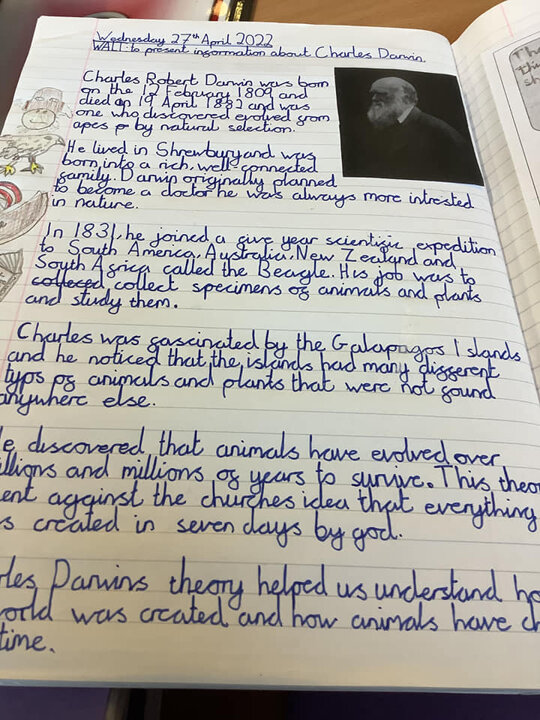 Wednesday 27th April 2022
WALT: to present information about Charles Darwin.
Charles Robert Darwin was born
on the 12 February 1809 and
died on 19 April 1882 and was
one who discovered evolved from
apes by natural selection.
He lived in Shrewbury and was
born into a rich, well-connected
family. Darwin originally planned
to become a doctor he was always more intrested
in nature.
In 1831, he joined a five year scientific expedition
to South America, Australia, New Zealand and
South Africa called the Beagle. His job was to
collect specimens of animals and plants
and study them.
Charles was fascinated by the Galapagos Islands
and he noticed that the islands had many different
typs of animals and plants that were not found
anywhere else.
e discovered that animals have evolved over
illions and millions of years to survive. This theor
ent against the churches idea that everything
s created in seven days by god.
rles Darwins theory helped us understand ho
world was created and how animals have ch
time.